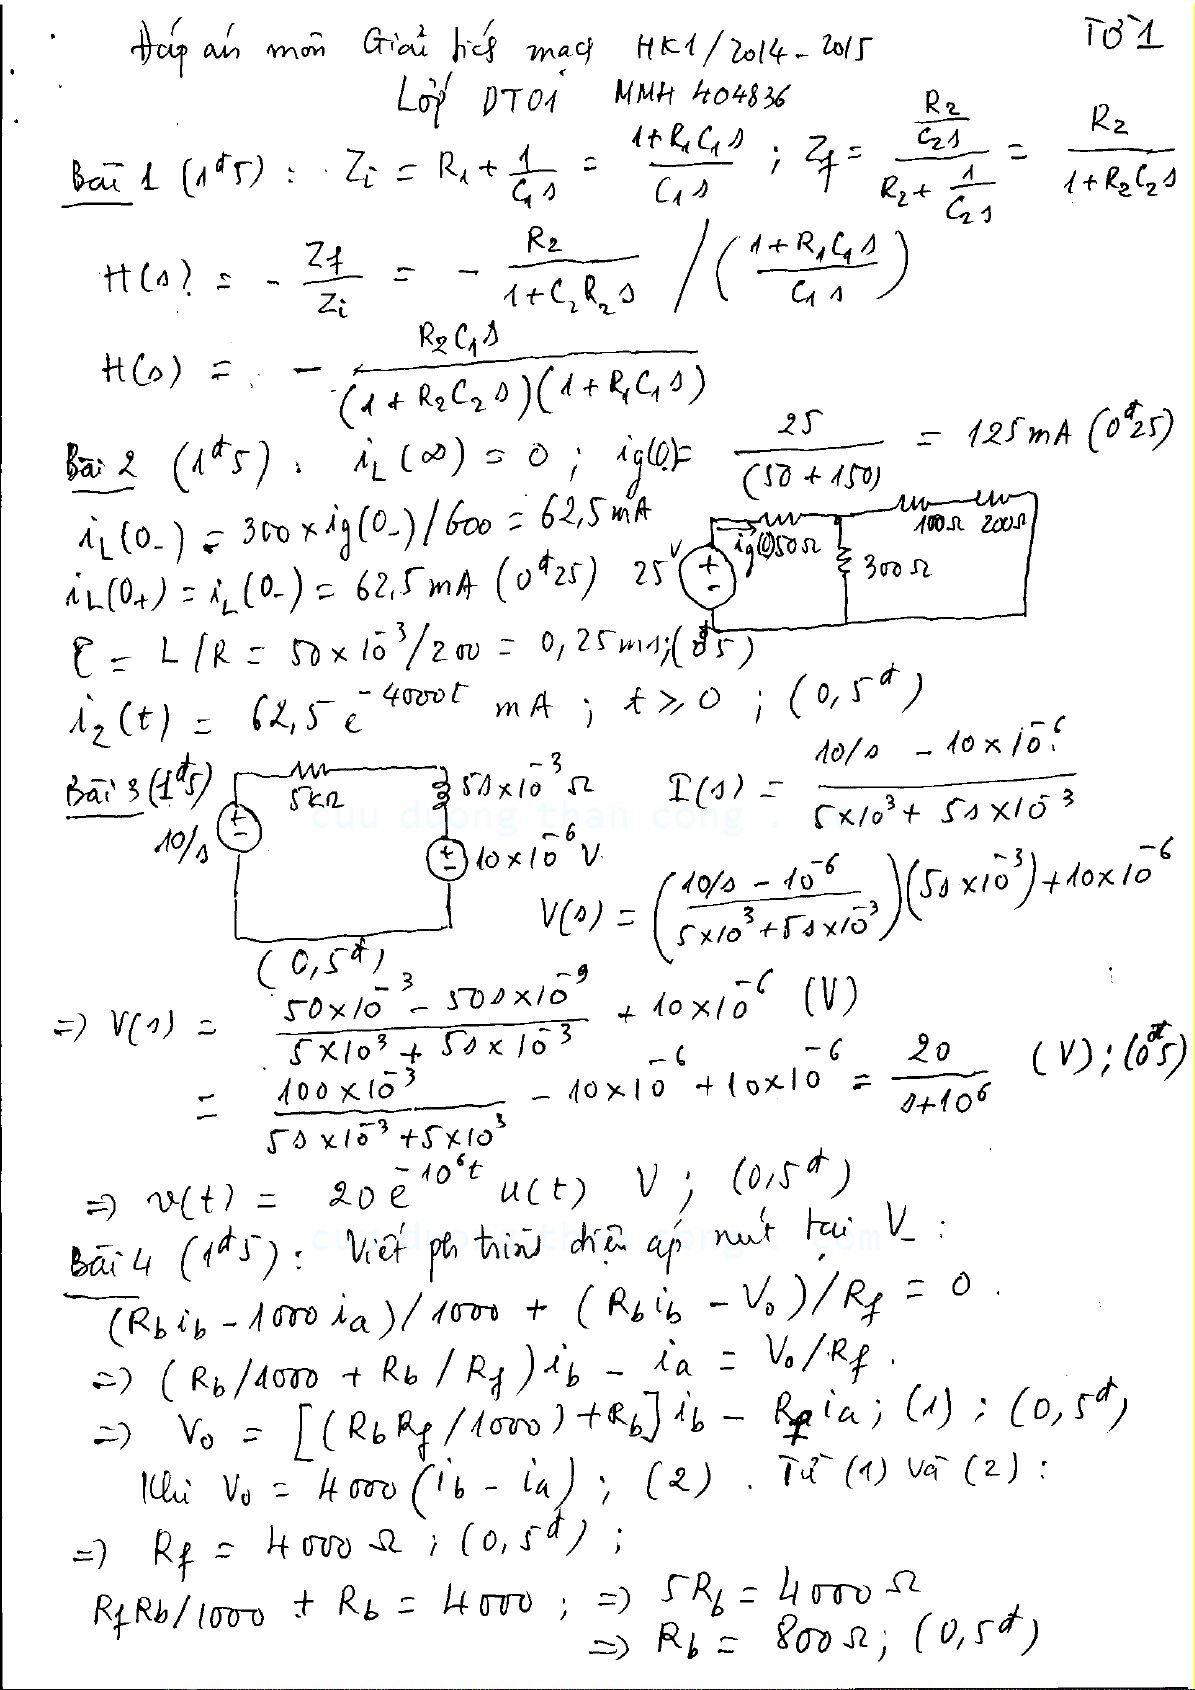 Đáp án môn Giải tích mạch HK1/2014-2015 TỜ 1
Lớp DT01 MMH 404836
Bài 1 (1đ5) : Zi = R1 + 1/(C1s) = (1+R1C1s)/(C1s) ; Zf = (R2/(C2s))/(R2 + 1/(C2s)) = R2/(1+R2C2s)
H(s) = - Zf/Zi = - R2/(1+C2R2s) / ((1+R1C1s)/(C1s))
H(s) = - R2C1s/((1+R2C2s)(1+R1C1s))
Bài 2 (1đ5) : iL(∞) = 0 ; ig(0-) = 25/(50+150) = 125mA (0đ25)
iL(0-) = 300×ig(0-)/600 = 62,5mA
iL(0+) = iL(0-) = 62,5 mA (0đ25)
25V ig(0) 50Ω 100Ω 200Ω 300Ω
τ = L/R = 50×10^-3/200 = 0,25ms; (0đ5)
i2(t) = 62,5 e^-4000t mA ; t ≥ 0 ; (0,5đ)
Bài 3 (1đ5)
10/s 5kΩ 5s×10^-3 Ω 10×10^-6 V
(0,5đ)
I(s) = (10/s - 10×10^-6)/(5×10^3 + 5s×10^-3)
V(s) = ((10/s - 10^-6)/(5×10^3+5s×10^-3))(5s×10^-3)+10×10^-6
=> V(s) = (50×10^-3 - 50s×10^-9)/(5×10^3 + 5s×10^-3) + 10×10^-6 (V)
= (100×10^-3)/(5s×10^-3+5×10^3) - 10×10^-6 + 10×10^-6 = 20/(s+10^6) (V); (0đ5)
=> v(t) = 20e^-10^6t u(t) V ; (0,5đ)
Bài 4 (1đ5) : Viết ph trình điện áp nút tại V_ :
(Rb ib - 1000 ia)/1000 + (Rb ib - Vo)/Rf = 0 .
=> (Rb/1000 + Rb/Rf) ib - ia = Vo/Rf .
=> Vo = [(RbRf/1000)+Rb] ib - Rf ia ; (1) ; (0,5đ)
Khi Vo = 4000(ib - ia) ; (2) . Từ (1) và (2) :
=> Rf = 4000Ω ; (0,5đ) ;
RfRb/1000 + Rb = 4000 ; => 5Rb = 4000Ω
=> Rb = 800Ω; (0,5đ)
cuu duong than cong . com
cuu duong than cong . com